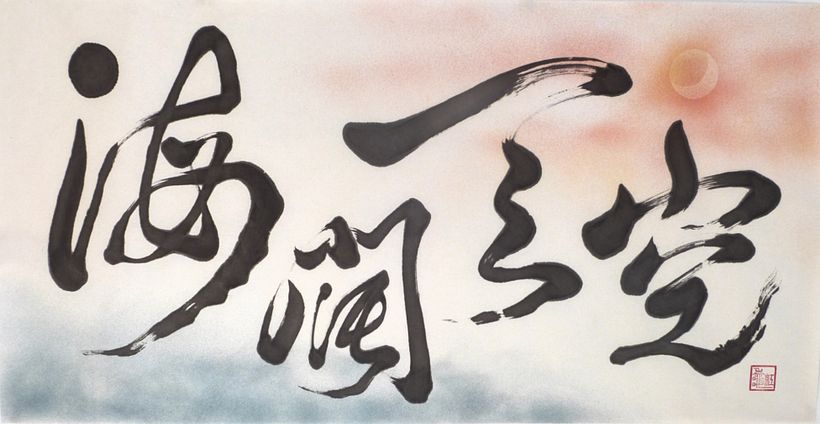 海闊天空